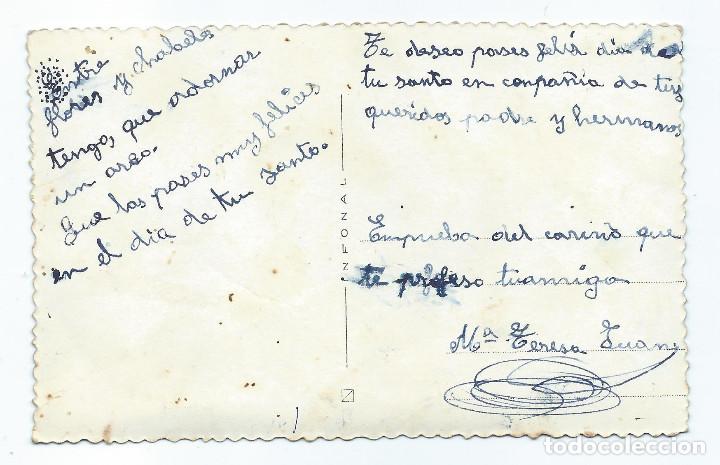 entre
flores y
tengo, que adornar
un arco.
Que los pases muy felices
en el dia de tu santo.
INFONAL
Te deseo pases feliz dia de
tu santo en conpañia de tus
queridos padre y hermanos
Emprueba del cariño que
te profeso tuamiga
Mª Teresa
todocoleccion
todocoleccion.net